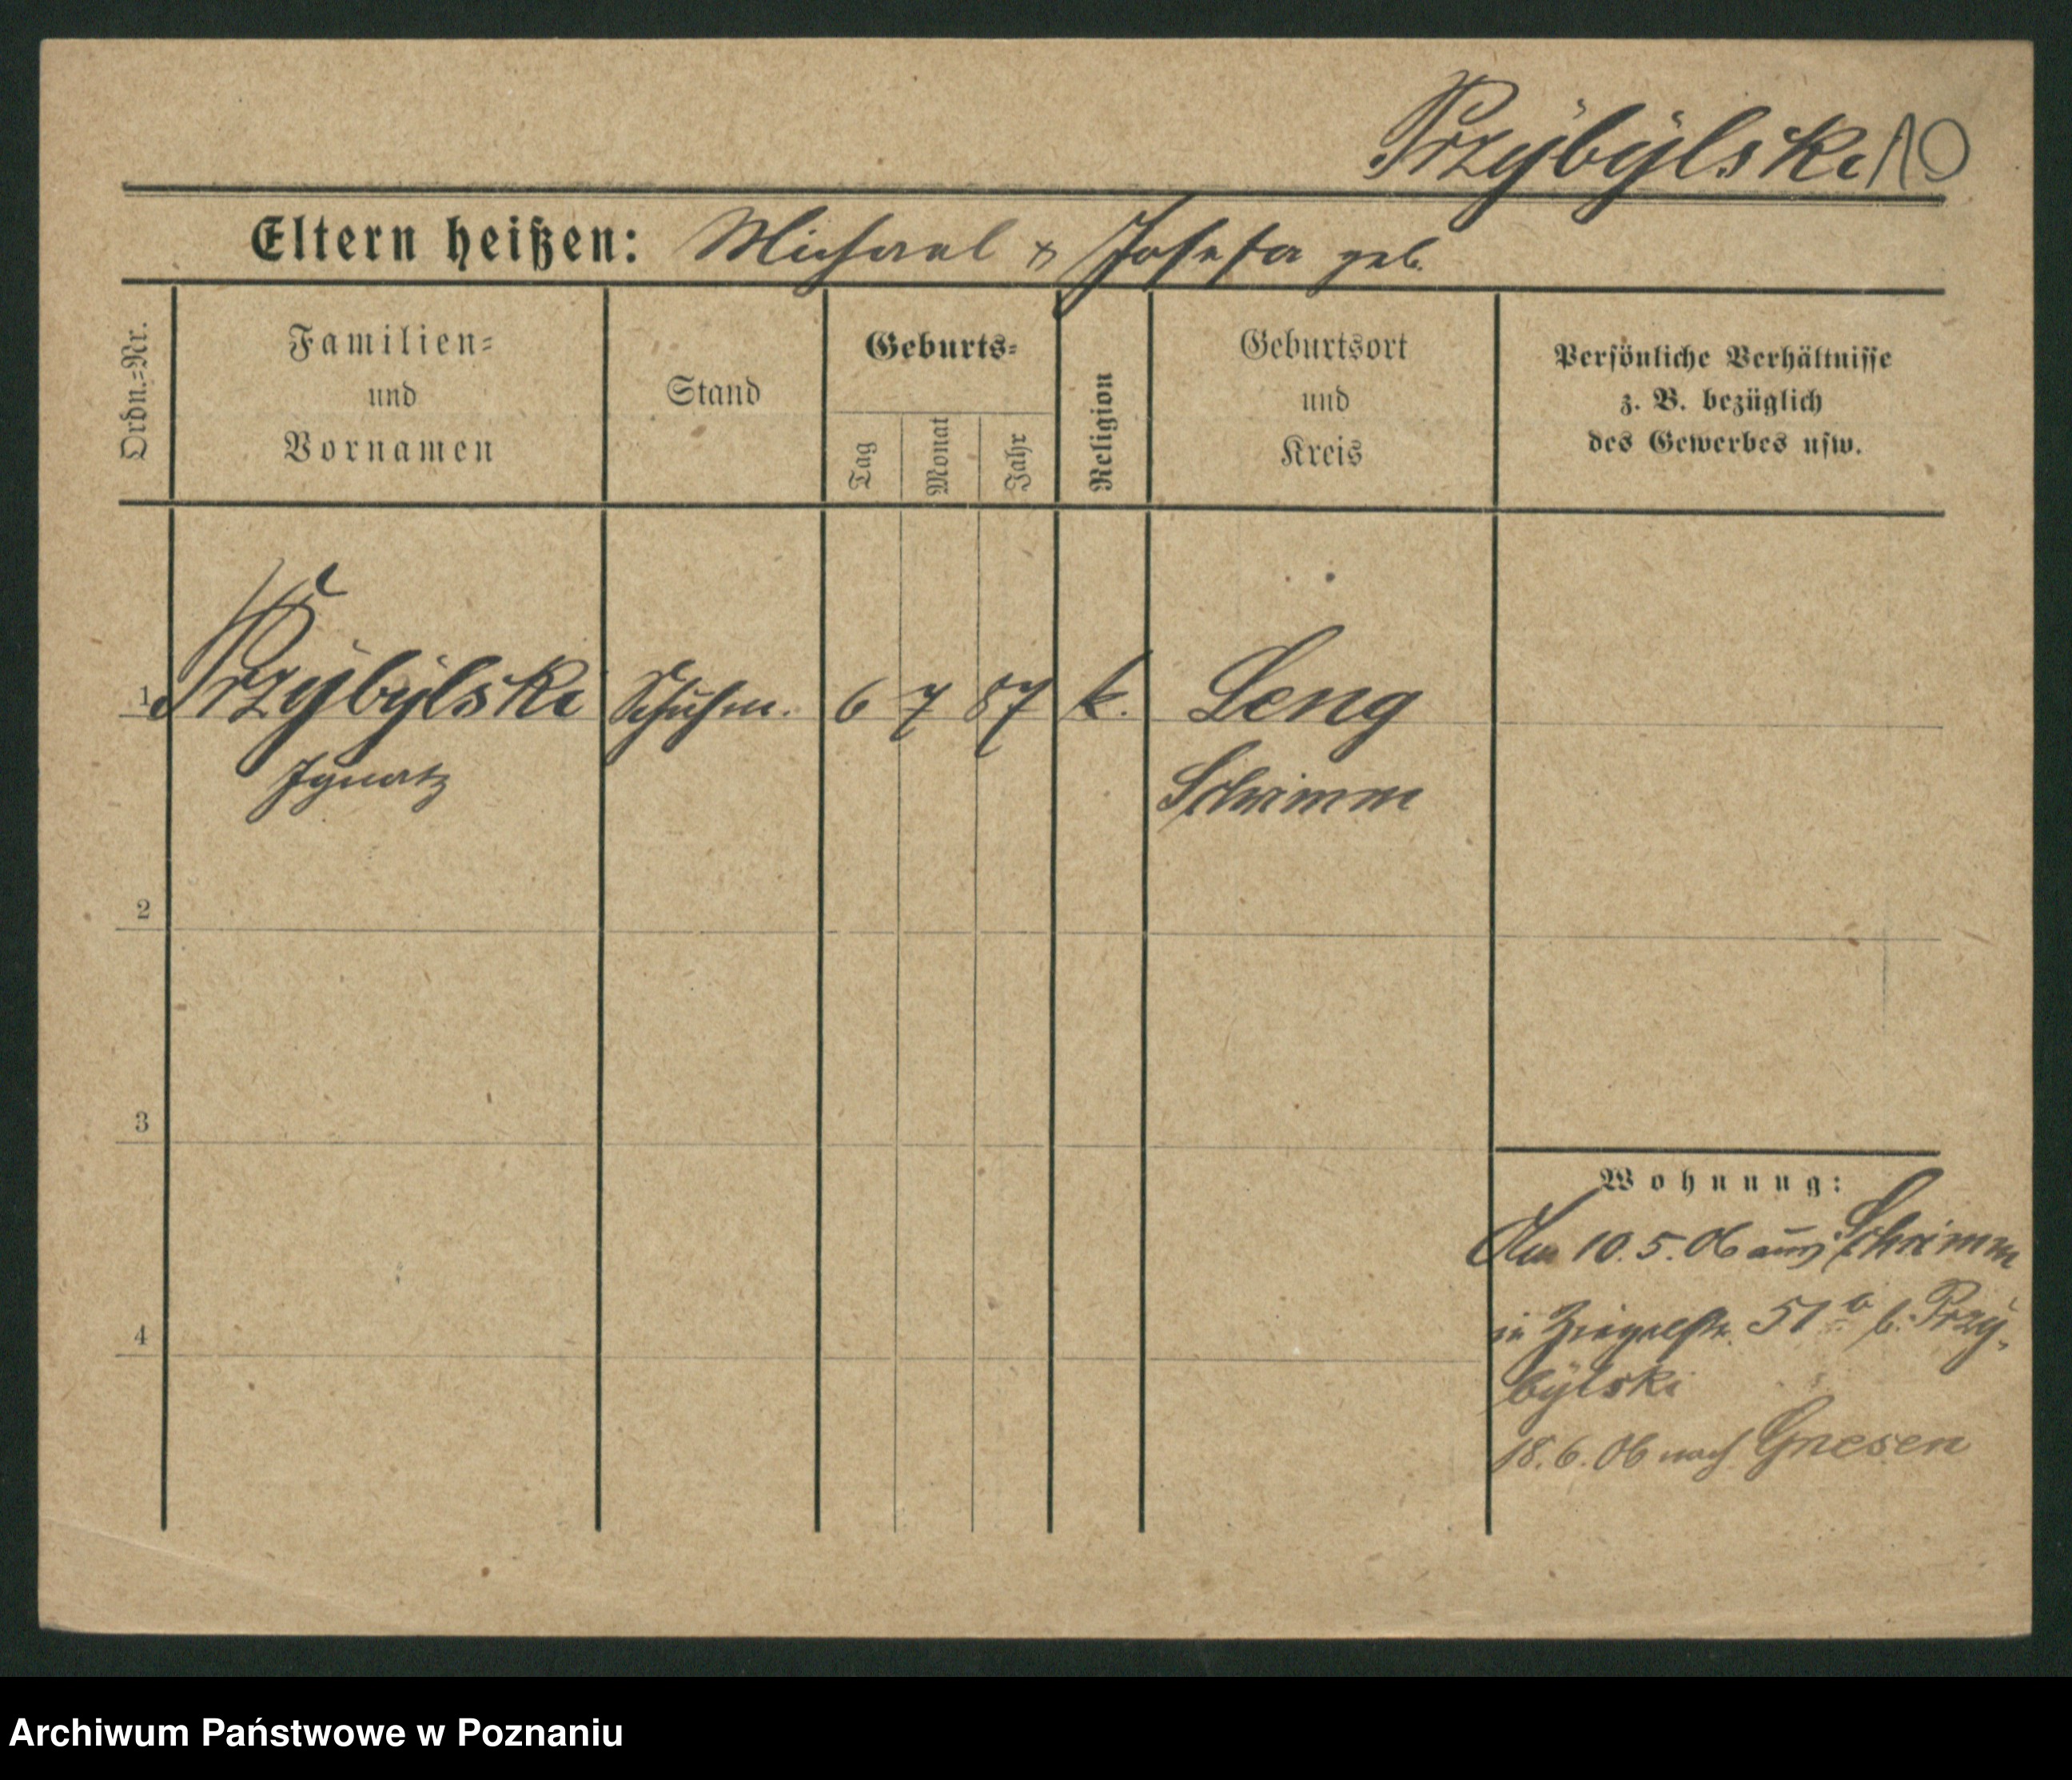 Przybylski 10
Eltern heißen: Michael & Josefa geb.
Ordn.=Nr.
Familien=
und
Vornamen
Stand
Geburts=
Tag
Monat
Jahr
Religion
Geburtsort
und
Kreis
Persönliche Verhältnisse
z. B. bezüglich
des Gewerbes usw.
1 Przybylski Schuhm. 6 7 87 k. Leng
Ignatz Schrimm
2
3
4
Wohnung:
10.5.06 aus Schrimm
in 51 b. Przy-
bylski
18.6.06 nach Gnesen
Archiwum Państwowe w Poznaniu